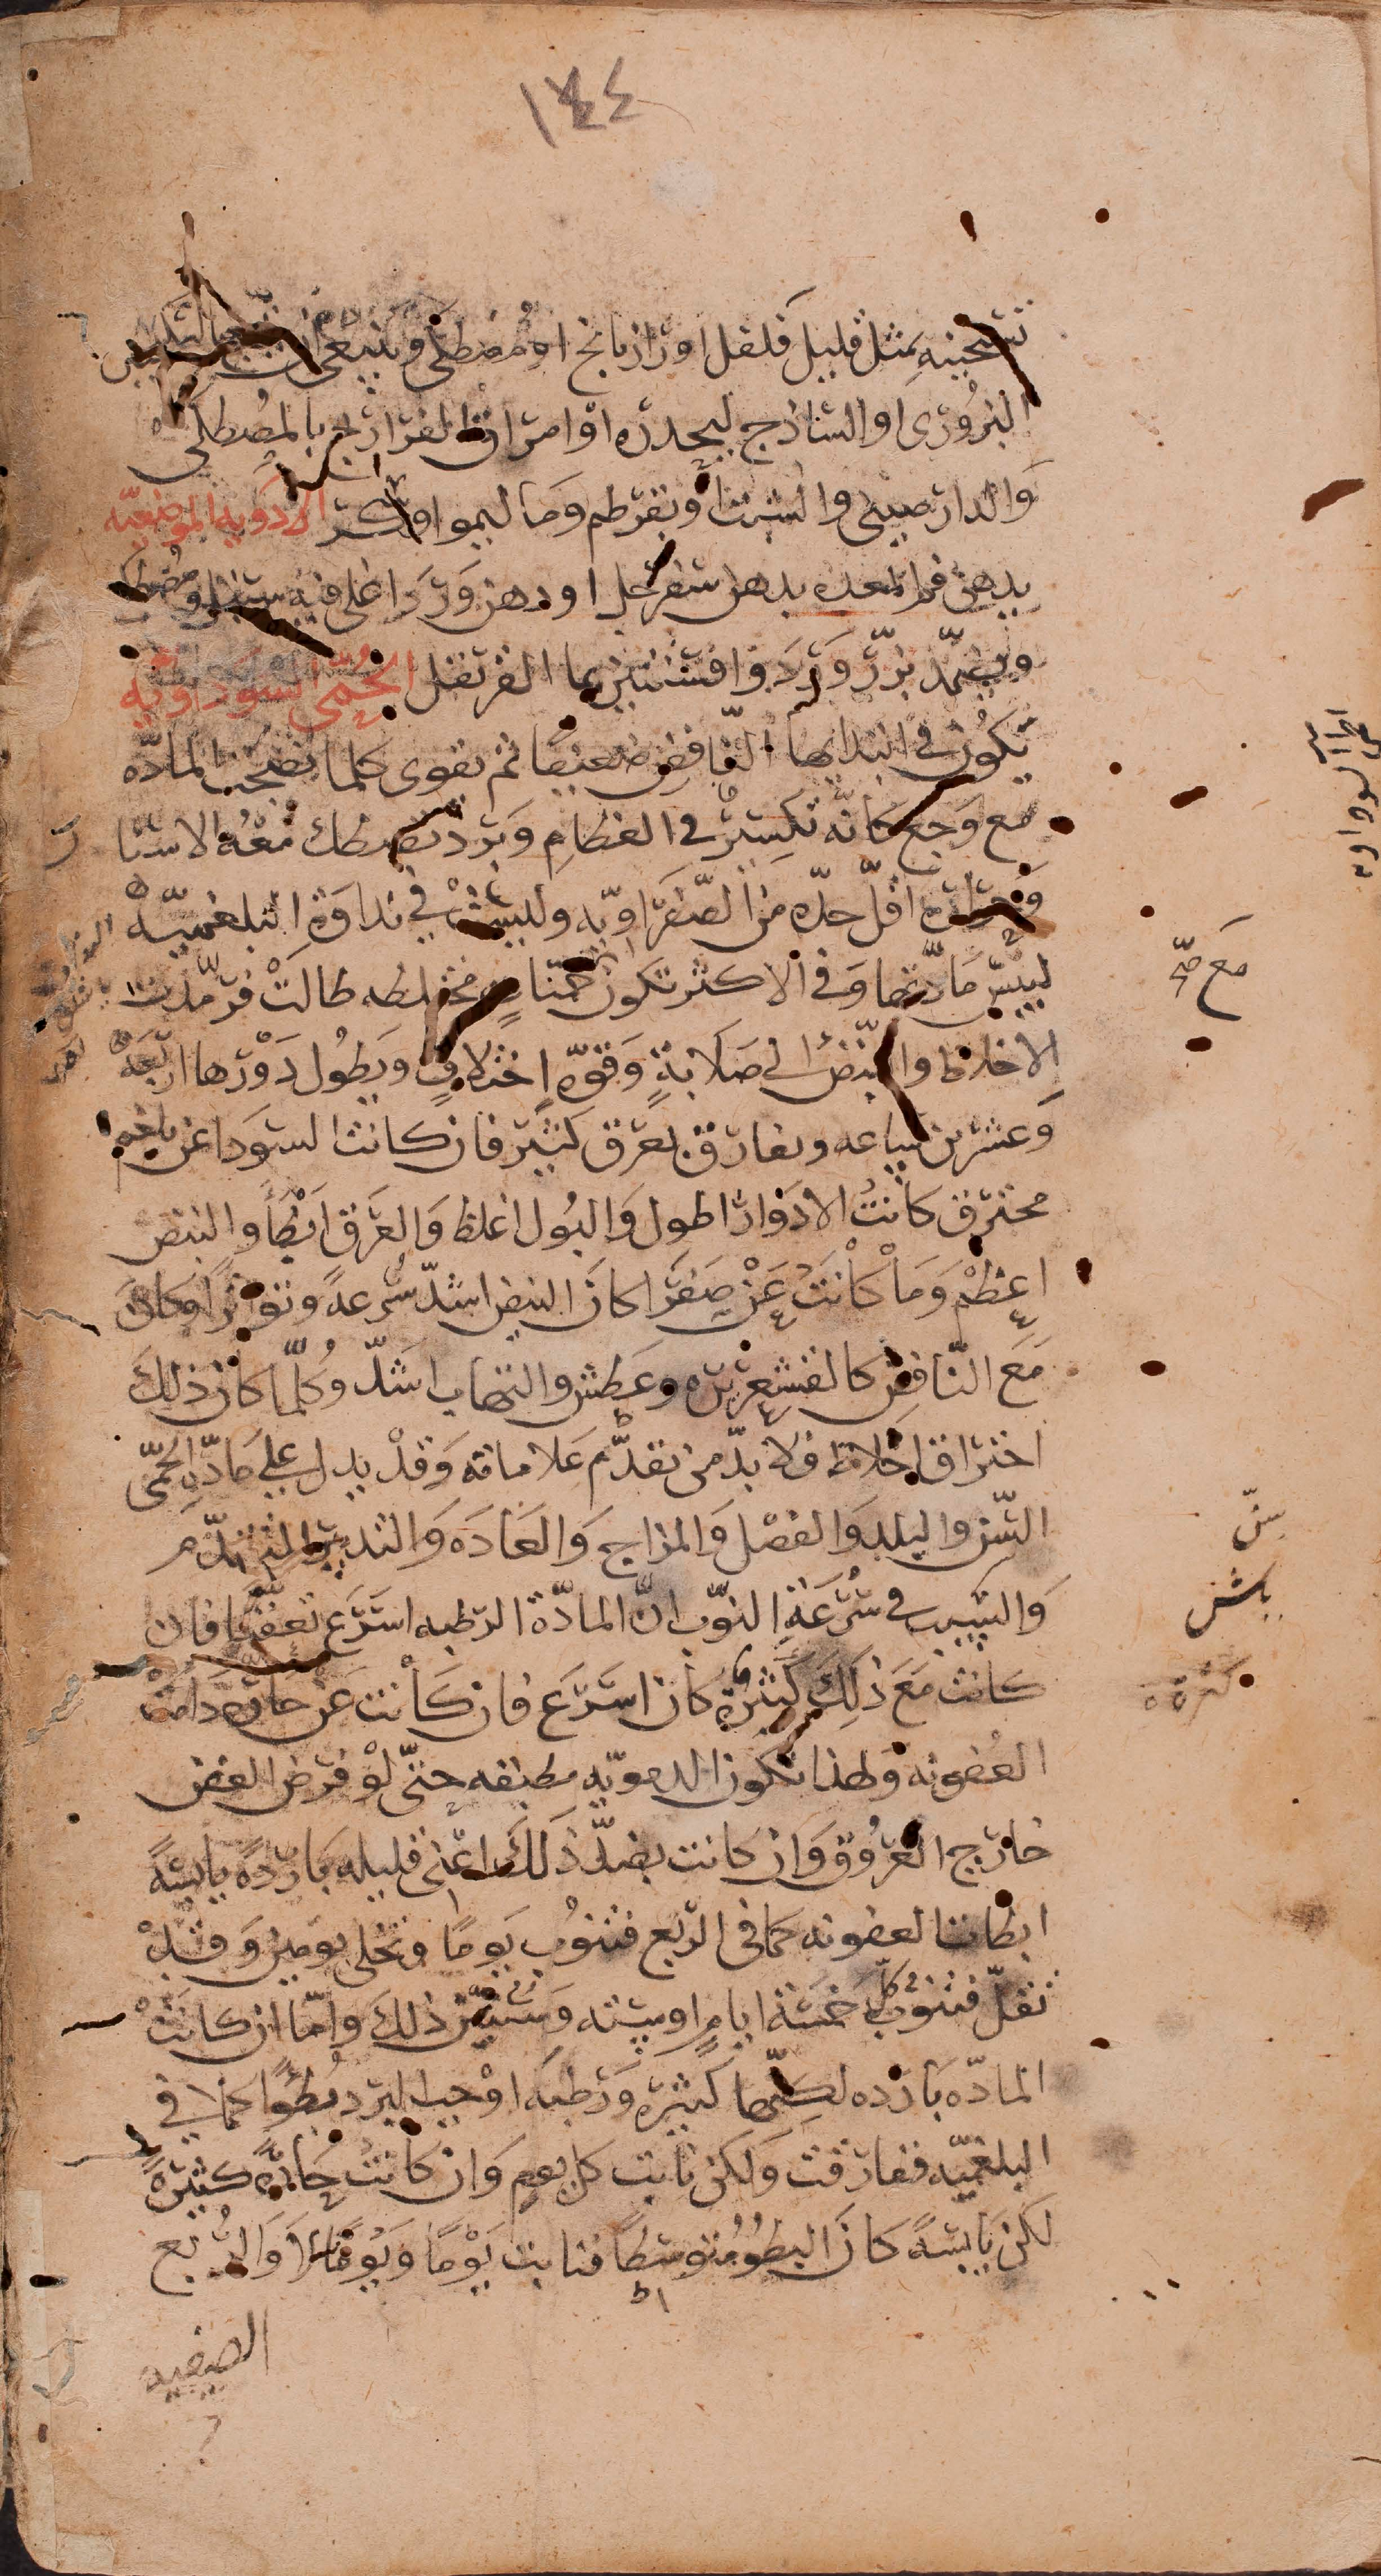 ١٤٤
تسخينه بمثل قليل فلفل او رازيانج او مصطكى وينبغي ان
البزوري او الساذج ليحدره او امراق الفراريج بالمصطكى
والدارصيني والشبت وبقرطم وماليمو او سكر الادوية الموضعية
يدهن فم المعدة بدهن سفرجل او دهن ورد اغلي فيه سنبل ومصطكى
ويضمد بزر ورد وافسنتين بما القرنفل الحمى السوداوية
تكون في ابتدايها النافض ضعيفا ثم يقوى كلما نضجت المادة
مع وجع كانه تكسير في العظام وبرد تصطك معه الاسنا
وحرارة اقل حدة من الصفراوية وليست في نداوة البلغمية
ليبس مادتها وفي الاكثر تكون عن حميات مختلطه طالت فرمدت
الاخلاط والنبض الى صلابة وقوة اختلاف ويطول دورها اربعة
وعشرين ساعه ويفارق بعرق كثير فان كانت السودا عن بلغم
محترق كانت الادوار اطول والبول اغلظ والعرق ابطأ والنبض
اعظم وما كانت عن صفرا كان النبض اشد سرعة وتواترا وكان
مع النافض كالقشعريرة وعطش والتهاب اشد وكلما كان ذلك
احتراق اخلاط فلا بد من تقدم علاماته وقد يدل على مادة الحمى
السن والبلد والفصل والمزاج والعادة والتدبير المتقدم
والسبب في سرعة النوب ان المادة الرطبه اسرع تعفنا فان
كانت مع ذلك كثيرة كان اسرع فان كانت عن حارة دامت
العفونه ولهذا تكون الدموية مطبقه حتى لو فرض العفن
خارج العروق وان كانت بضد ذلك اعني قليله باردة يابسة
ابطات العفونه كما في الربع فتنوب يوما وتخلي يومين وقد
تقل فتنوب كل خمسة ايام او ستة وسنين ذلك واما ان كانت
المادة بارده لكنها كثيرة ورطبة اوجب البرد بطوا كما في
البلغمية ففارقت ولكن نابت كل يوم وان كانت حارة كثيرة
لكن يابسة كان البطو متوسطا فنابت يوما ويوما لا والربع
الصيفيه
مع صح
سن
كثرة